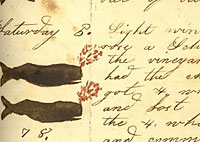 Saturday 8. Light win
the vineyar
had the
got 4, w
and lost
the 4, wh
78.
and comm